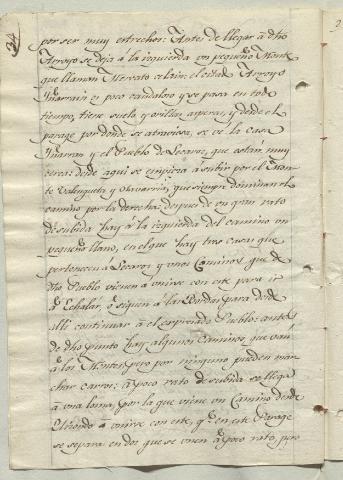 24
por ser muy estrecho: Antes de llegar à dho
Arroyo se deja à la izquierda un pequeño Monte
que llaman Mercato celain: el citado Arroyo
Yñarrain es poco caudaloso y se pasa en todo
tiempo, tiene suelo, y orillas asperas, y desde el
parage por donde se atraviesa, se ve la Casa
Yñarran y el Pueblo de Lecaroz, que están muy
cerca: desde aqui se empieza à subir por el Mon-
te y Olavarria, que siempre dominan el
camino por la derecha: despues de un gran rato
de subida hay à la izquierda del camino un
pequeño llano, en el que hay tres casas que
pertenecen a Lecaros y unos Caminos que de
dho Pueblo vienen à unirse con este para ir
à Echalàr, ò siguen à las Bordas, para desde
alli continuar à el expresado Pueblo: antes
de dho punto hay algunos caminos que van
à los Montes, pero por ninguno pueden mar-
char carros: à poco rato de subida se llega
à una loma, por la que viene un Camino desde
Elizondo à unirse con este, qe. en este Parage
se separa en dos que se unen à poco rato, pero